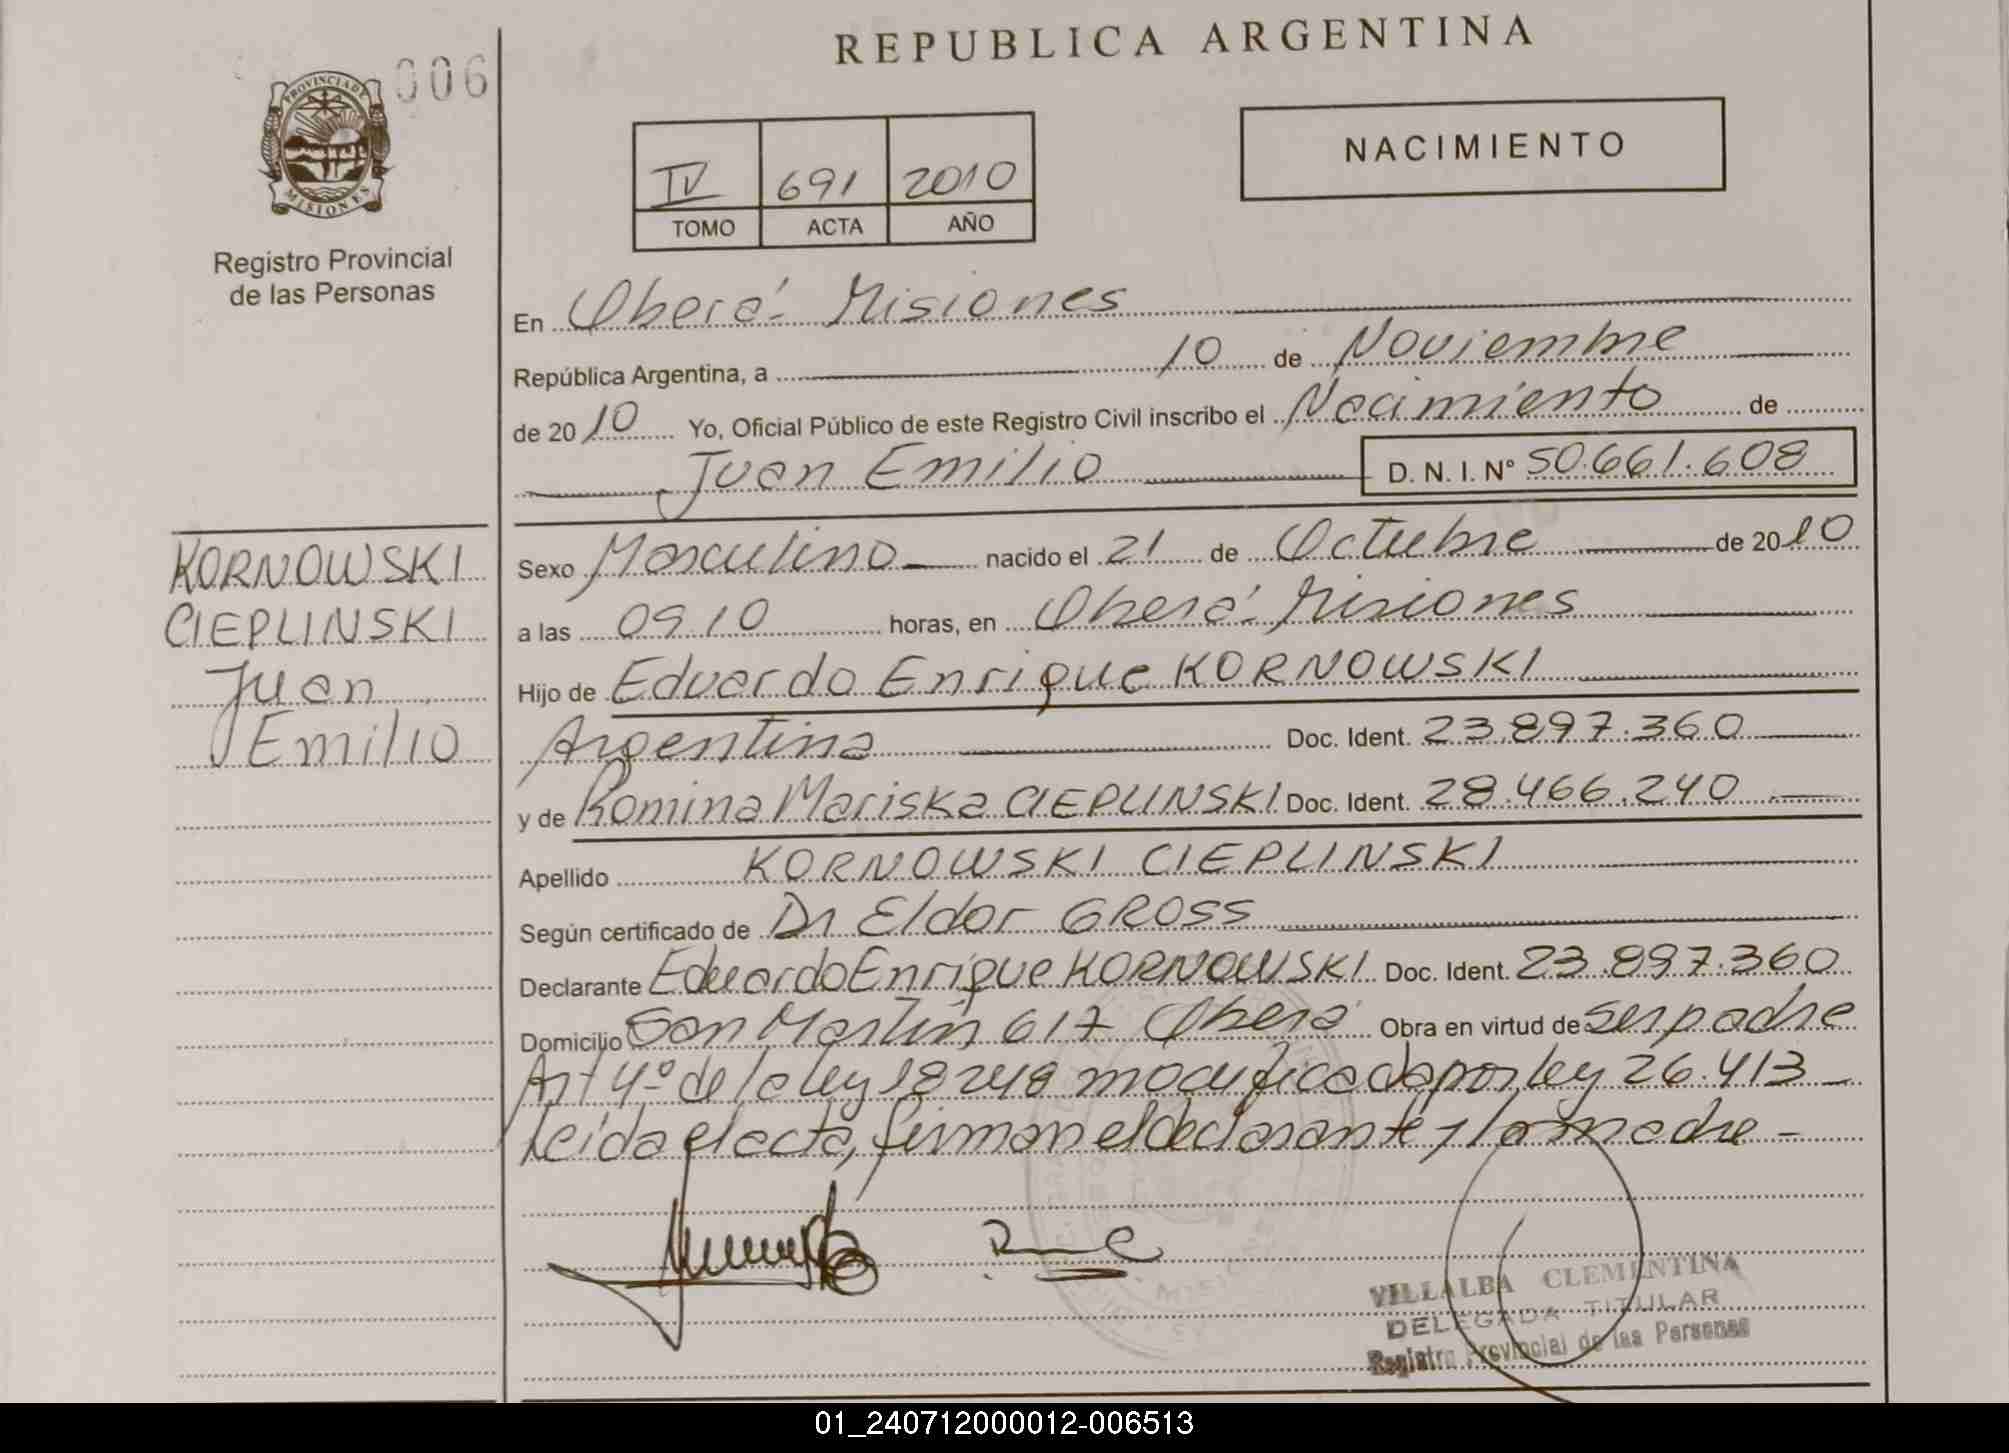 REPUBLICA ARGENTINA
006
PROVINCIA DE
MISIONES
Registro Provincial
de las Personas
IV 691 2010
TOMO ACTA AÑO
NACIMIENTO
En Oberá - Misiones
República Argentina, a 10 de Noviembre
de 2010 Yo, Oficial Público de este Registro Civil inscribo el Nacimiento de
Juan Emilio D. N. I. N° 50.661.608
KORNOWSKI
CIEPLINSKI
Juan
Emilio
Sexo Masculino nacido el 21 de Octubre de 2010
a las 09.10 horas, en Oberá - Misiones
Hijo de Eduardo Enrique KORNOWSKI
Argentina Doc. Ident. 23.897.360
y de Romina Mariska CIEPLINSKI Doc. Ident. 28.466.240
Apellido KORNOWSKI CIEPLINSKI
Según certificado de Dr Eldor GROSS
Declarante Eduardo Enrique KORNOWSKI Doc. Ident. 23.897.360
Domicilio San Martín 617 Oberá Obra en virtud de ser padre
Art 4º de la ley 18248 modificada por ley 26.413
Leida el acta, firman el declarante y la madre -
VILLALBA CLEMENTINA
DELEGADA TITULAR
Registro Provincial de las Personas
01_240712000012-006513